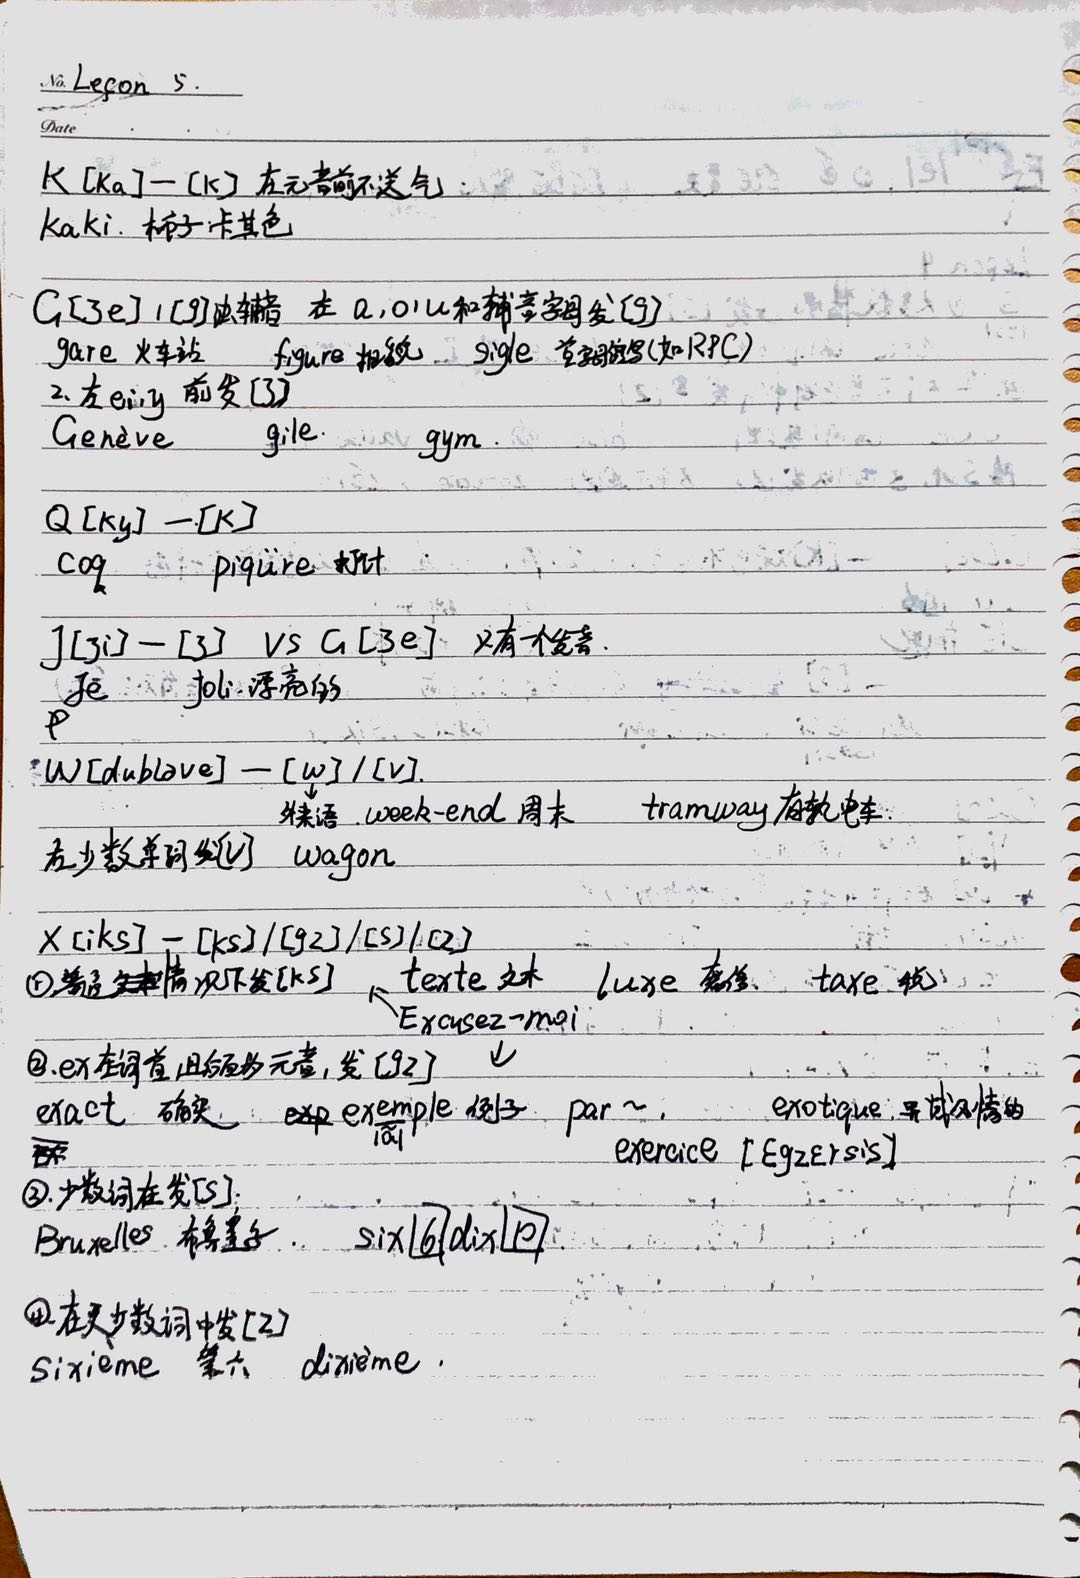 No. Leçon 5.
Date
K [Ka]—[K] 在元音前不送气.
Kaki. 柿子.卡其色
G [ʒe] 1[g] 辅音 在 a,o,u和辅音字母发[g]
gare 火车站 figure sigle 首字母缩写(如RPC)
2.在e,i,y 前发[ʒ]
Genève gile. gym.
Q [Ky] —[K]
coq piqûre 打针
J [ʒi]—[ʒ] VS G [ʒe] 只有一个发音.
Je Joli 漂亮的
P
W [dublәve] — [w]/[v].
外来语. week-end 周末 tramway 有轨电车.
在少数单词发[v] wagon
X [iks] — [ks]/[gz]/[s]/[z]
①普通情况下发[ks] texte 文本 luxe 奢华 taxe 税
Excusez-moi
②.ex在词首,且后面为元音,发[gz]
exact 确实 exemple 例子 par ~. exotique 异域风情的
[ɑ̃] exercice [ɛgzɛrsis]
③.少数词在发[s].
Bruxelles 布鲁塞尔. six[6] dix[10].
④.在更少数词中发[z]
sixième 第六 dixième.